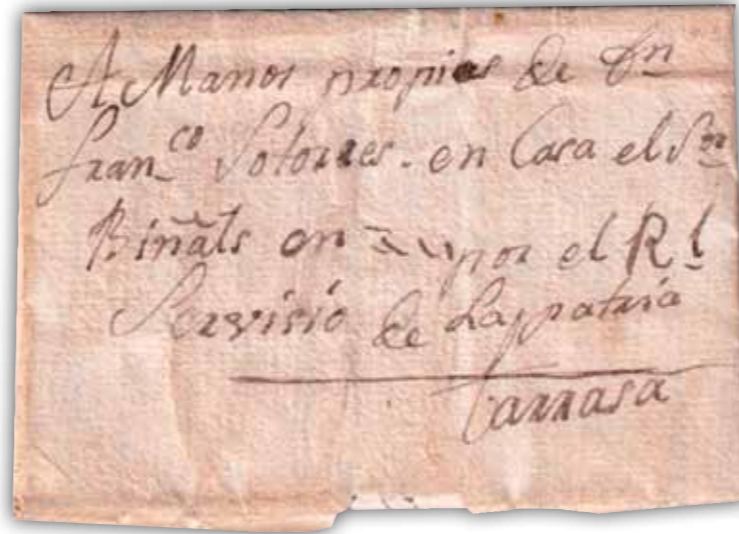 A Manos propias de Dn
Fran.co Sotorres. en Casa el Sor
Biñals en por el Rl
Servisio de La patria
Tarrasa